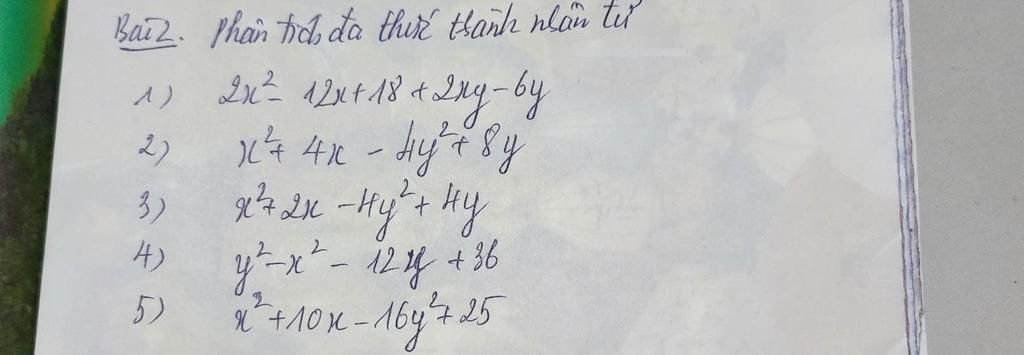 Bài 2. Phân tích đa thức thành nhân tử
1) 2x² - 12x + 18 + 2xy - 6y
2) x² + 4x - 4y² + 8y
3) x² + 2x - 4y² + 4y
4) y² - x² - 12y + 36
5) x² + 10x - 16y² + 25